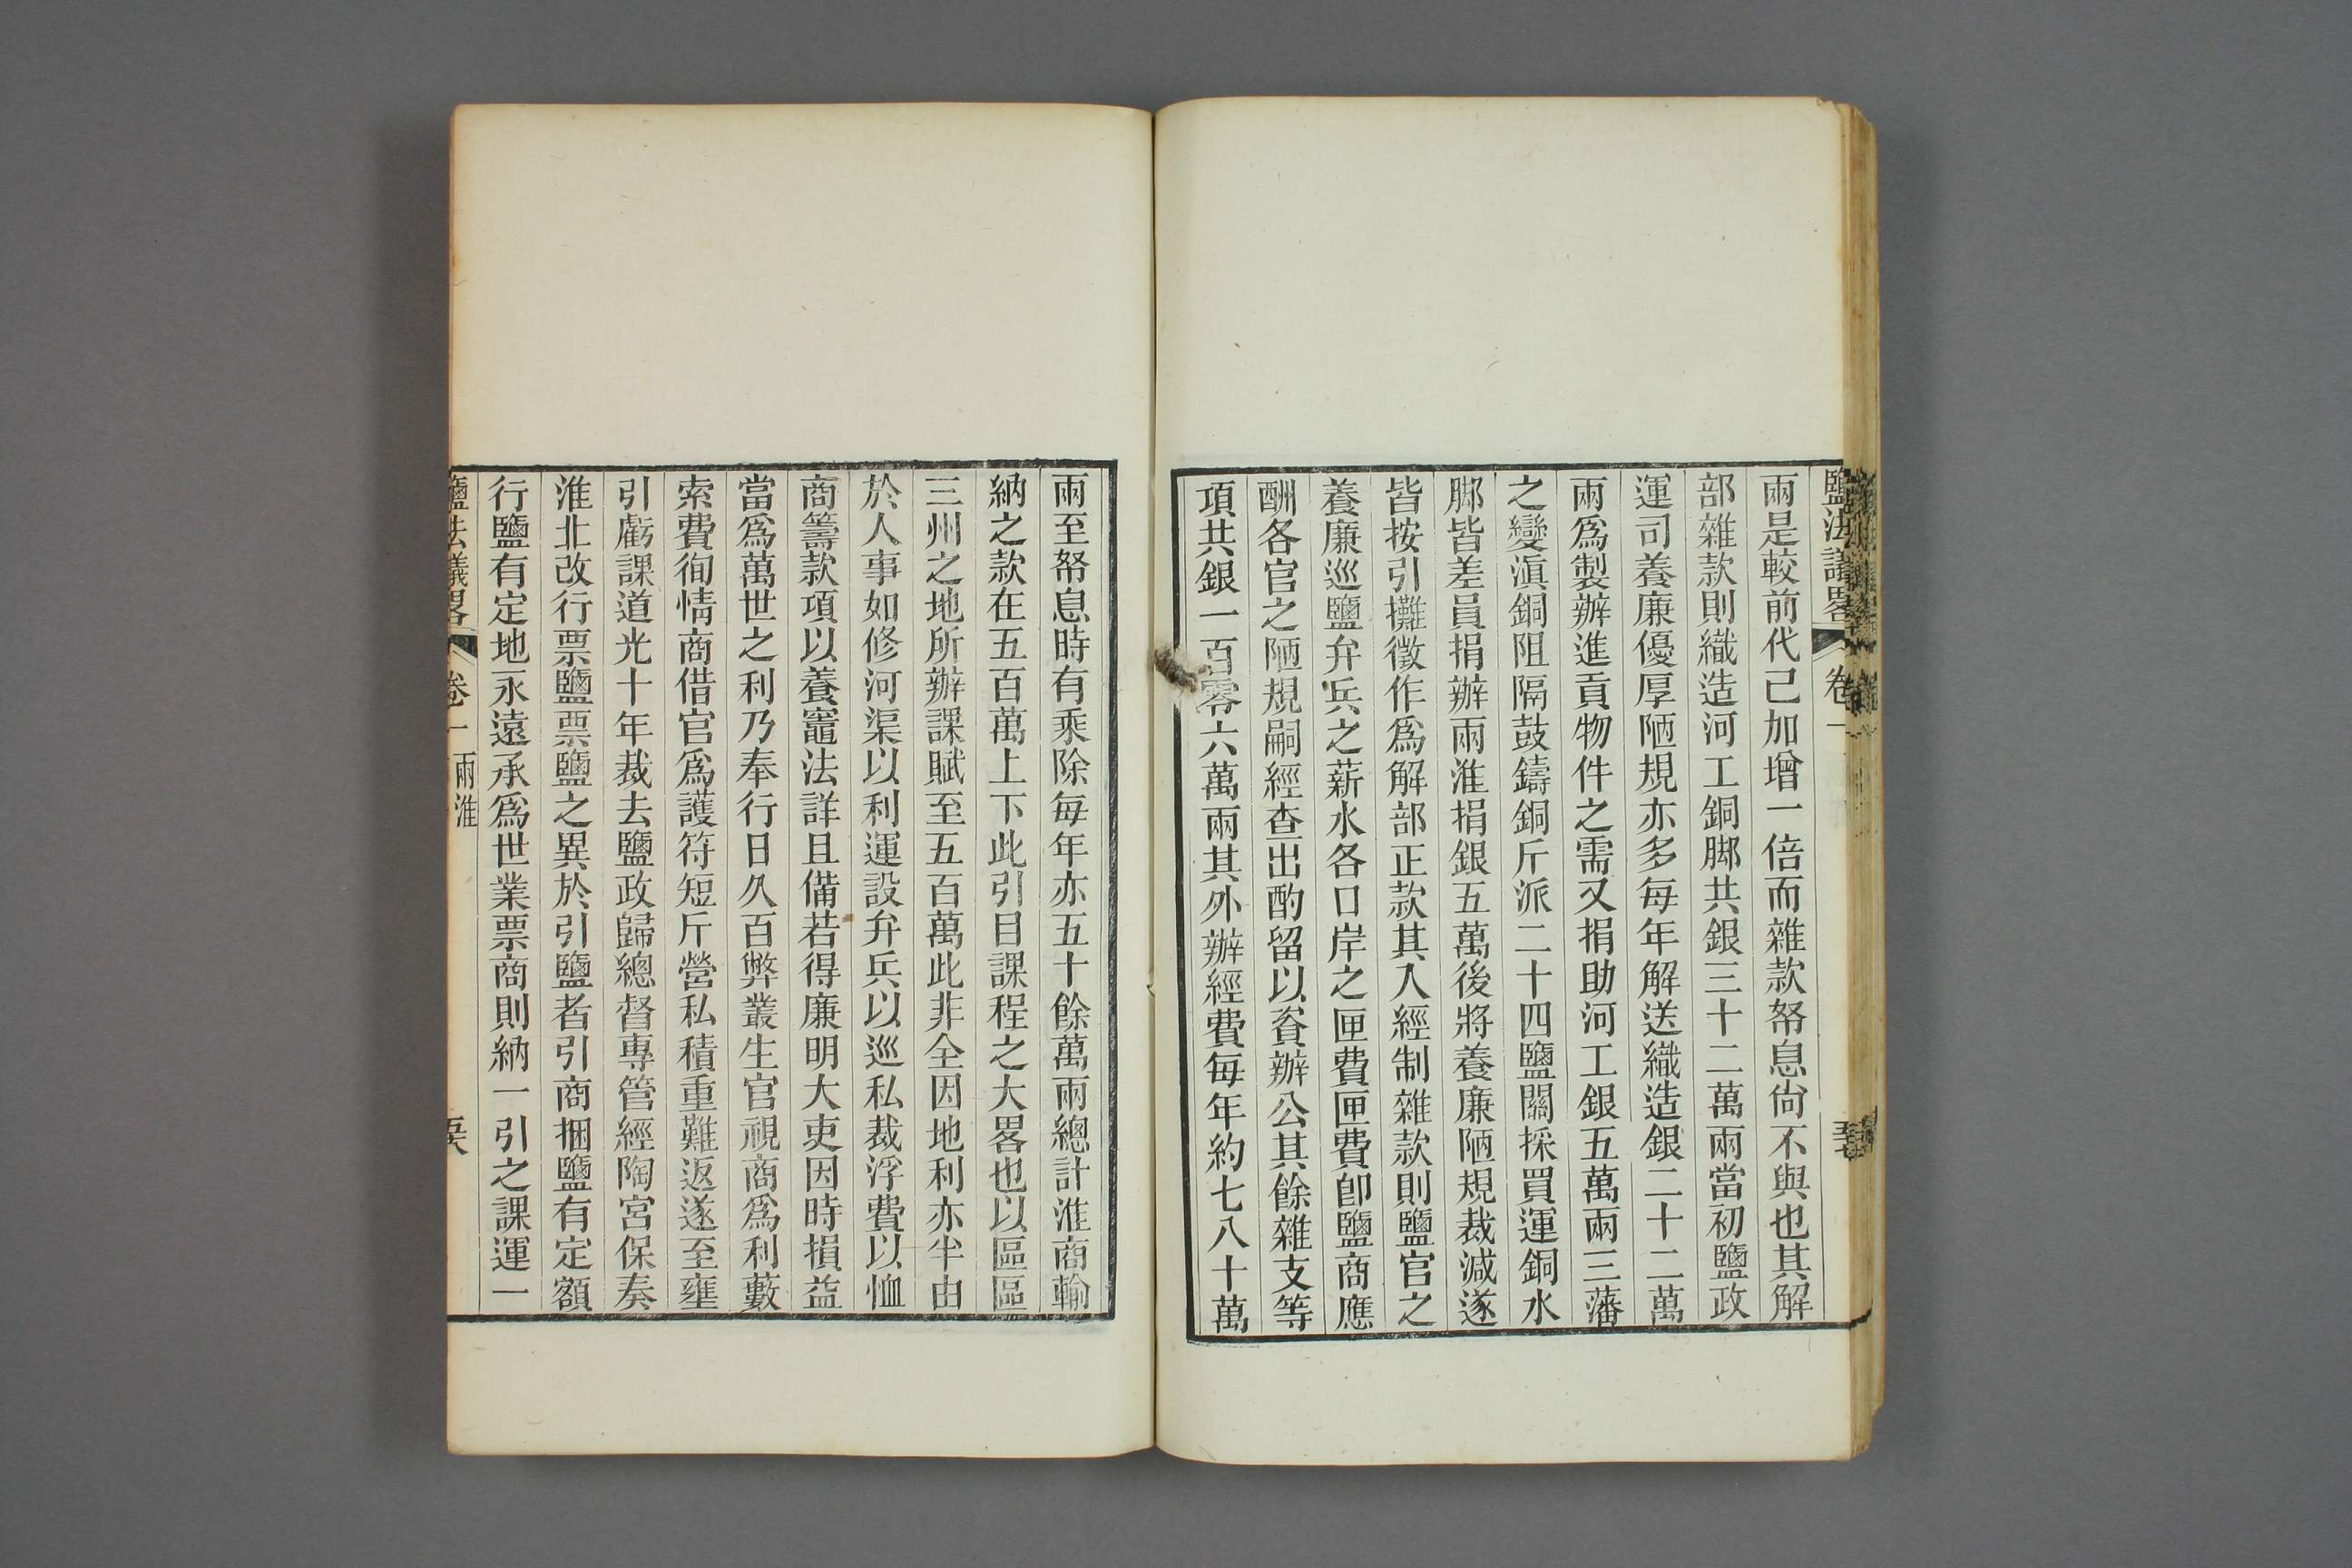 鹽法議畧 卷一
兩是較前代已加增一倍而雜款帑息尙不與也其解
部雜款則織造河工銅脚共銀三十二萬兩當初鹽政
運司養廉優厚陋規亦多每年解送織造銀二十二萬
兩爲製辦進貢物件之需又捐助河工銀五萬兩三藩
之變滇銅阻隔鼓鑄銅斤派二十四鹽關採買運銅水
脚皆差員捐辦兩淮捐銀五萬後將養廉陋規裁減遂
皆按引攤徵作爲解部正款其入經制雜款則鹽官之
養廉巡鹽弁兵之薪水各口岸之匣費匣費卽鹽商應
酬各官之陋規嗣經查出酌留以資辦公其餘雜支等
項共銀一百零六萬兩其外辦經費每年約七八十萬
兩至帑息時有乘除每年亦五十餘萬兩總計淮商輸
納之款在五百萬上下此引目課程之大畧也以區區
三州之地所辦課賦至五百萬此非全因地利亦半由
於人事如修河渠以利運設弁兵以巡私裁浮費以恤
商籌款項以養竈法詳且備若得廉明大吏因時損益
當爲萬世之利乃奉行日久百弊叢生官視商爲利藪
索費徇情商借官爲護符短斤營私積重難返遂至壅
引虧課道光十年裁去鹽政歸總督專管經陶宮保奏
淮北改行票鹽票鹽之異於引鹽者引商捆鹽有定額
行鹽有定地永遠承爲世業票商則納一引之課運一
鹽法議畧 卷一 兩淮 五六